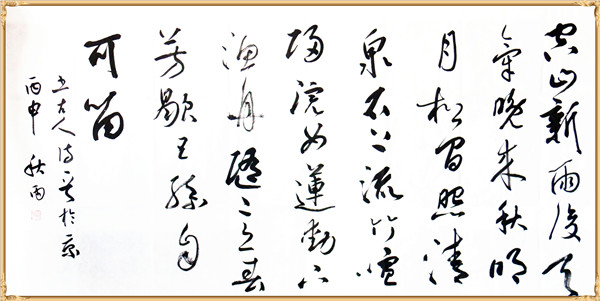 空山新雨後天
氣晚來秋明
月松間照清
泉石上流竹喧
歸浣女蓮動下
漁舟隨意春
芳歇王孫自
可留
书古人诗一首於京
丙申 秋雨